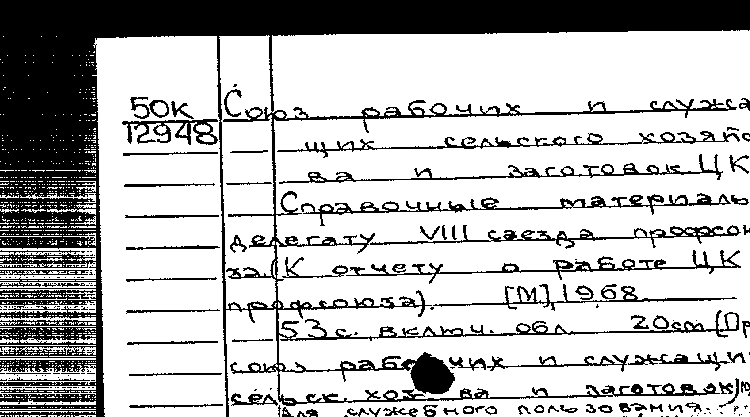 50к Союз рабочих и служа
12948 щих сельского хозяйс
ва и заготовок ЦК
Справочные материалы
делегату VIII съезда профсою
за (К отчету о работе ЦК
профсоюза). [М], 1968
53 с. включ. обл. 20см (Пр
союз рабочих и служащи
сельск. хоз ва и заготовок)
Для служебного пользования.